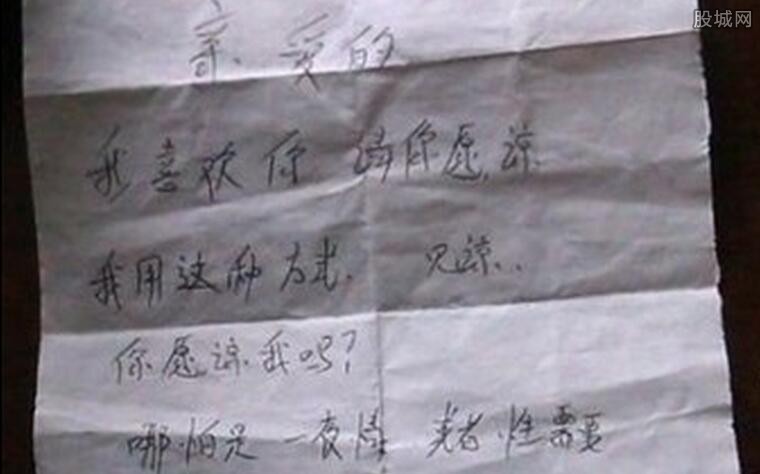 股城网
亲爱的
我喜欢你 请你愿谅
我用这种方式. 见谅..
你愿谅我吗?
哪怕是 一夜情 或者 性需要